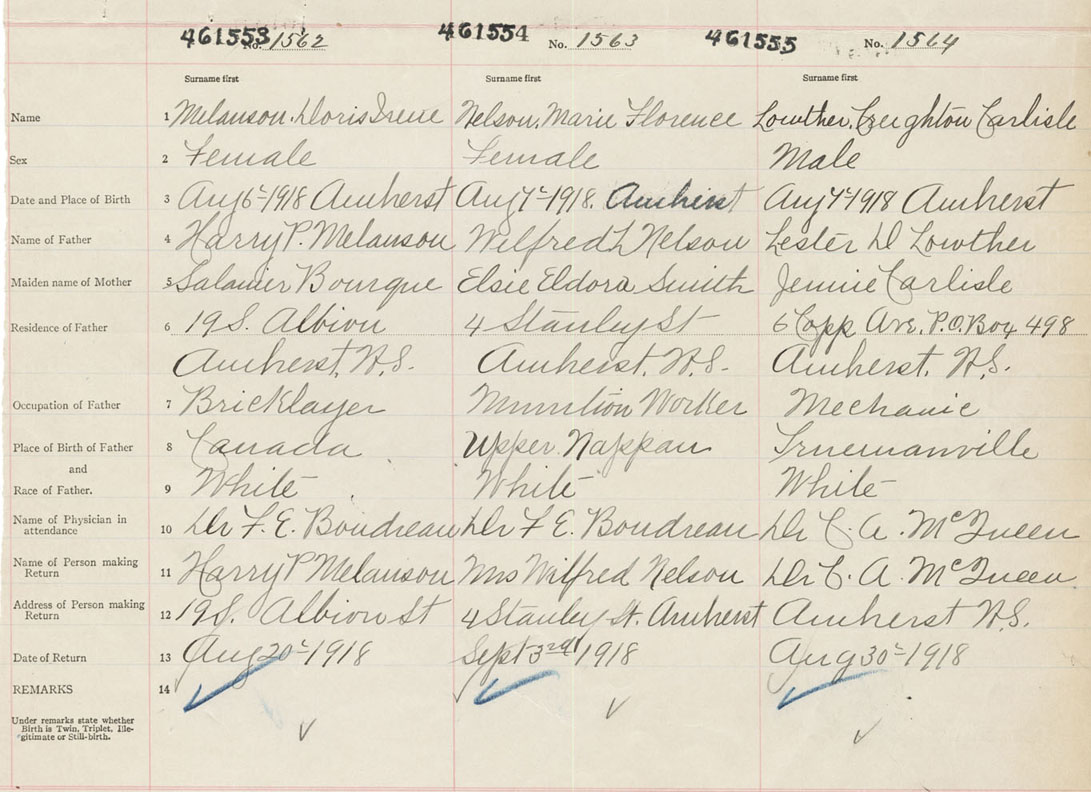 461553 No. 1562 461554 No. 1563 461555 No. 1564
Surname first Surname first Surname first
Name 1 Melanson, Doris Irene Nelson, Marie Florence Lowther, Creighton Carlisle
Sex 2 Female Female Male
Date and Place of Birth 3 Aug 6th 1918 Amherst Aug 7th 1918. Amherst Aug 7th 1918 Amherst
Name of Father 4 Harry P. Melanson Wilfred L Nelson Lester D Lowther
Maiden name of Mother 5 Bourque Elsie Eldora Smith Jennie Carlisle
Residence of Father 6 19 S. Albion 4 Stanley St 6 Copp Ave. P.O. Box 498
Amherst, N.S. Amherst, N.S. Amherst, N.S.
Occupation of Father 7 Bricklayer Munition Worker Mechanic
Place of Birth of Father 8 Canada Upper Nappan Truemanville
and
Race of Father. 9 White White White
Name of Physician in attendance 10 Dr F. E. Boudreau Dr F E. Boudreau Dr C. A. McQueen
Name of Person making Return 11 Harry P Melanson Mrs Wilfred Nelson Dr C. A. McQueen
Address of Person making Return 12 19 S. Albion St 4 Stanley St. Amherst Amherst N.S.
Date of Return 13 Aug 20th 1918 Sept 3rd 1918 Aug 30th 1918
REMARKS 14
Under remarks state whether
Birth is Twin, Triplet, Ille-
gitimate or Still-birth.